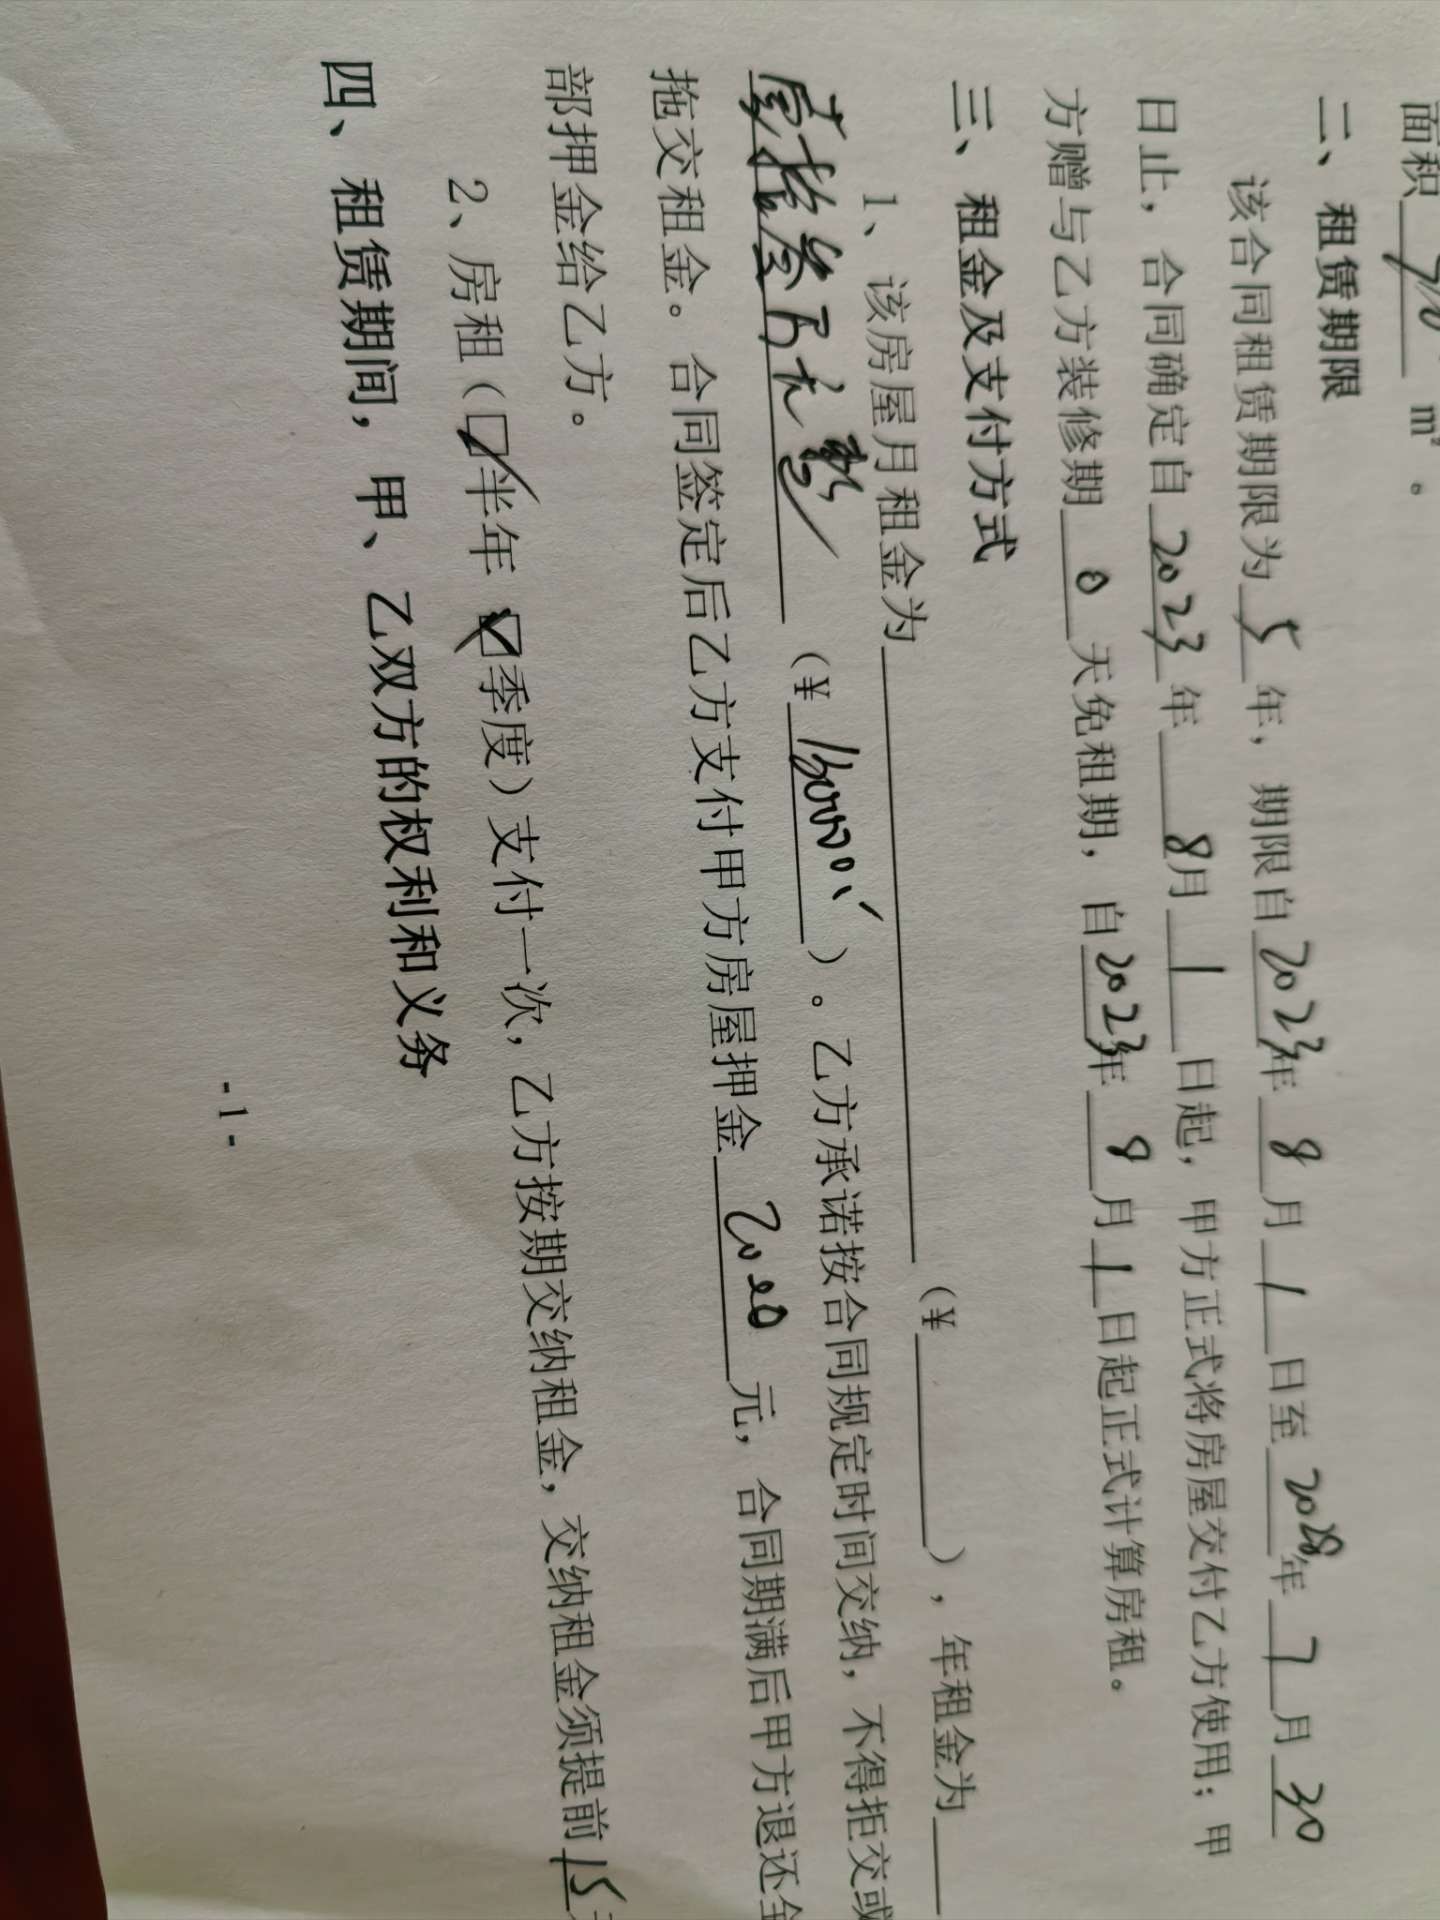 面积 70 m²。
二、租赁期限
该合同租赁期限为 5 年，期限自 2023 年 8 月 1 日至 2028 年 7 月 30
日止，合同确定自 2023 年 8 月 1 日起，甲方正式将房屋交付乙方使用；甲
方赠与乙方装修期 0 天免租期，自 2023 年 8 月 1 日起正式计算房租。
三、租金及支付方式
1、该房屋月租金为 （¥ ），年租金为
（¥ ）。乙方承诺按合同规定时间交纳，不得拒交或
拖交租金。合同签定后乙方支付甲方房屋押金 2000 元，合同期满后甲方退还全
部押金给乙方。
2、房租（☑半年 ☑季度）支付一次，乙方按期交纳租金，交纳租金须提前 15
四、租赁期间，甲、乙双方的权利和义务
- 1 -